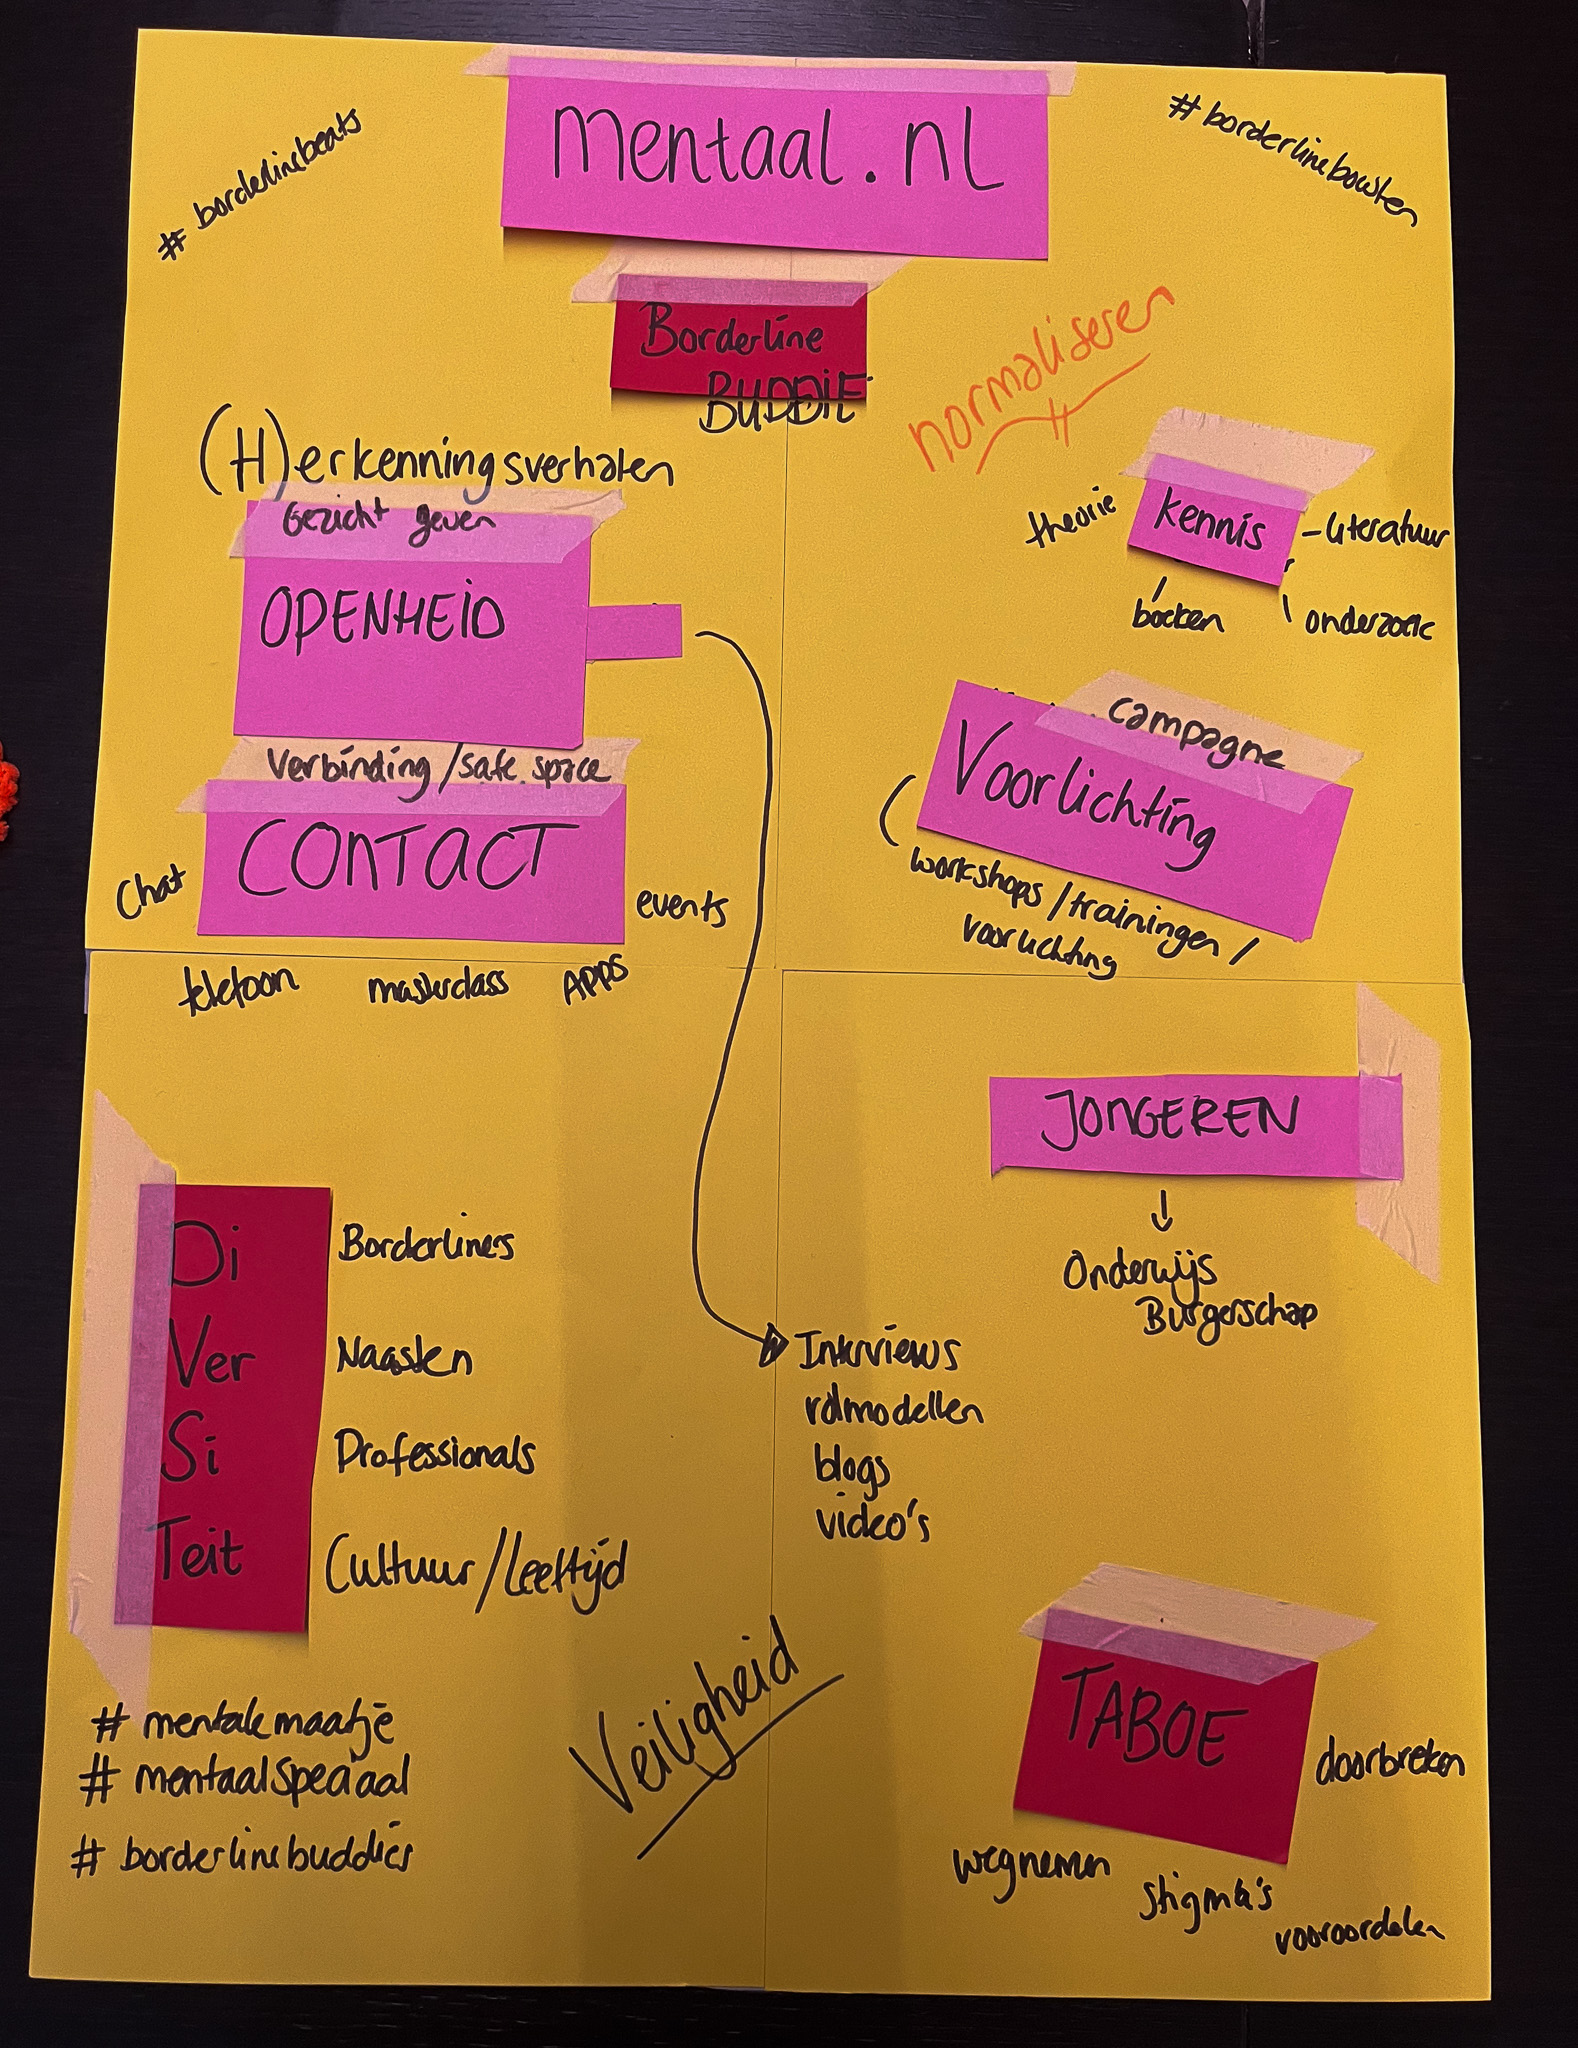 mentaal.nl
# borderlinebeats
# borderlinebowlen
Borderline
BUDDIE
normaliseren
(H)erkenningsverhalen
Gezicht geven
OPENHEID
Verbinding / safe space
CONTACT
Chat
events
telefoon masterclass Apps
kennis
theorie
- literatuur
boeken
onderzoek
campagne
Voorlichting
( workshops / trainingen /
voorlichting
JONGEREN
↓
Onderwijs
Burgerschap
Interviews
rolmodellen
blogs
video's
Di Borderliners
Ver Naasten
Si Professionals
Teit Cultuur / Leeftijd
# mentalemaatje
# mentaalspeciaal
# borderlinebuddies
Veiligheid
TABOE
doorbreken
wegnemen
stigma's
vooroordelen